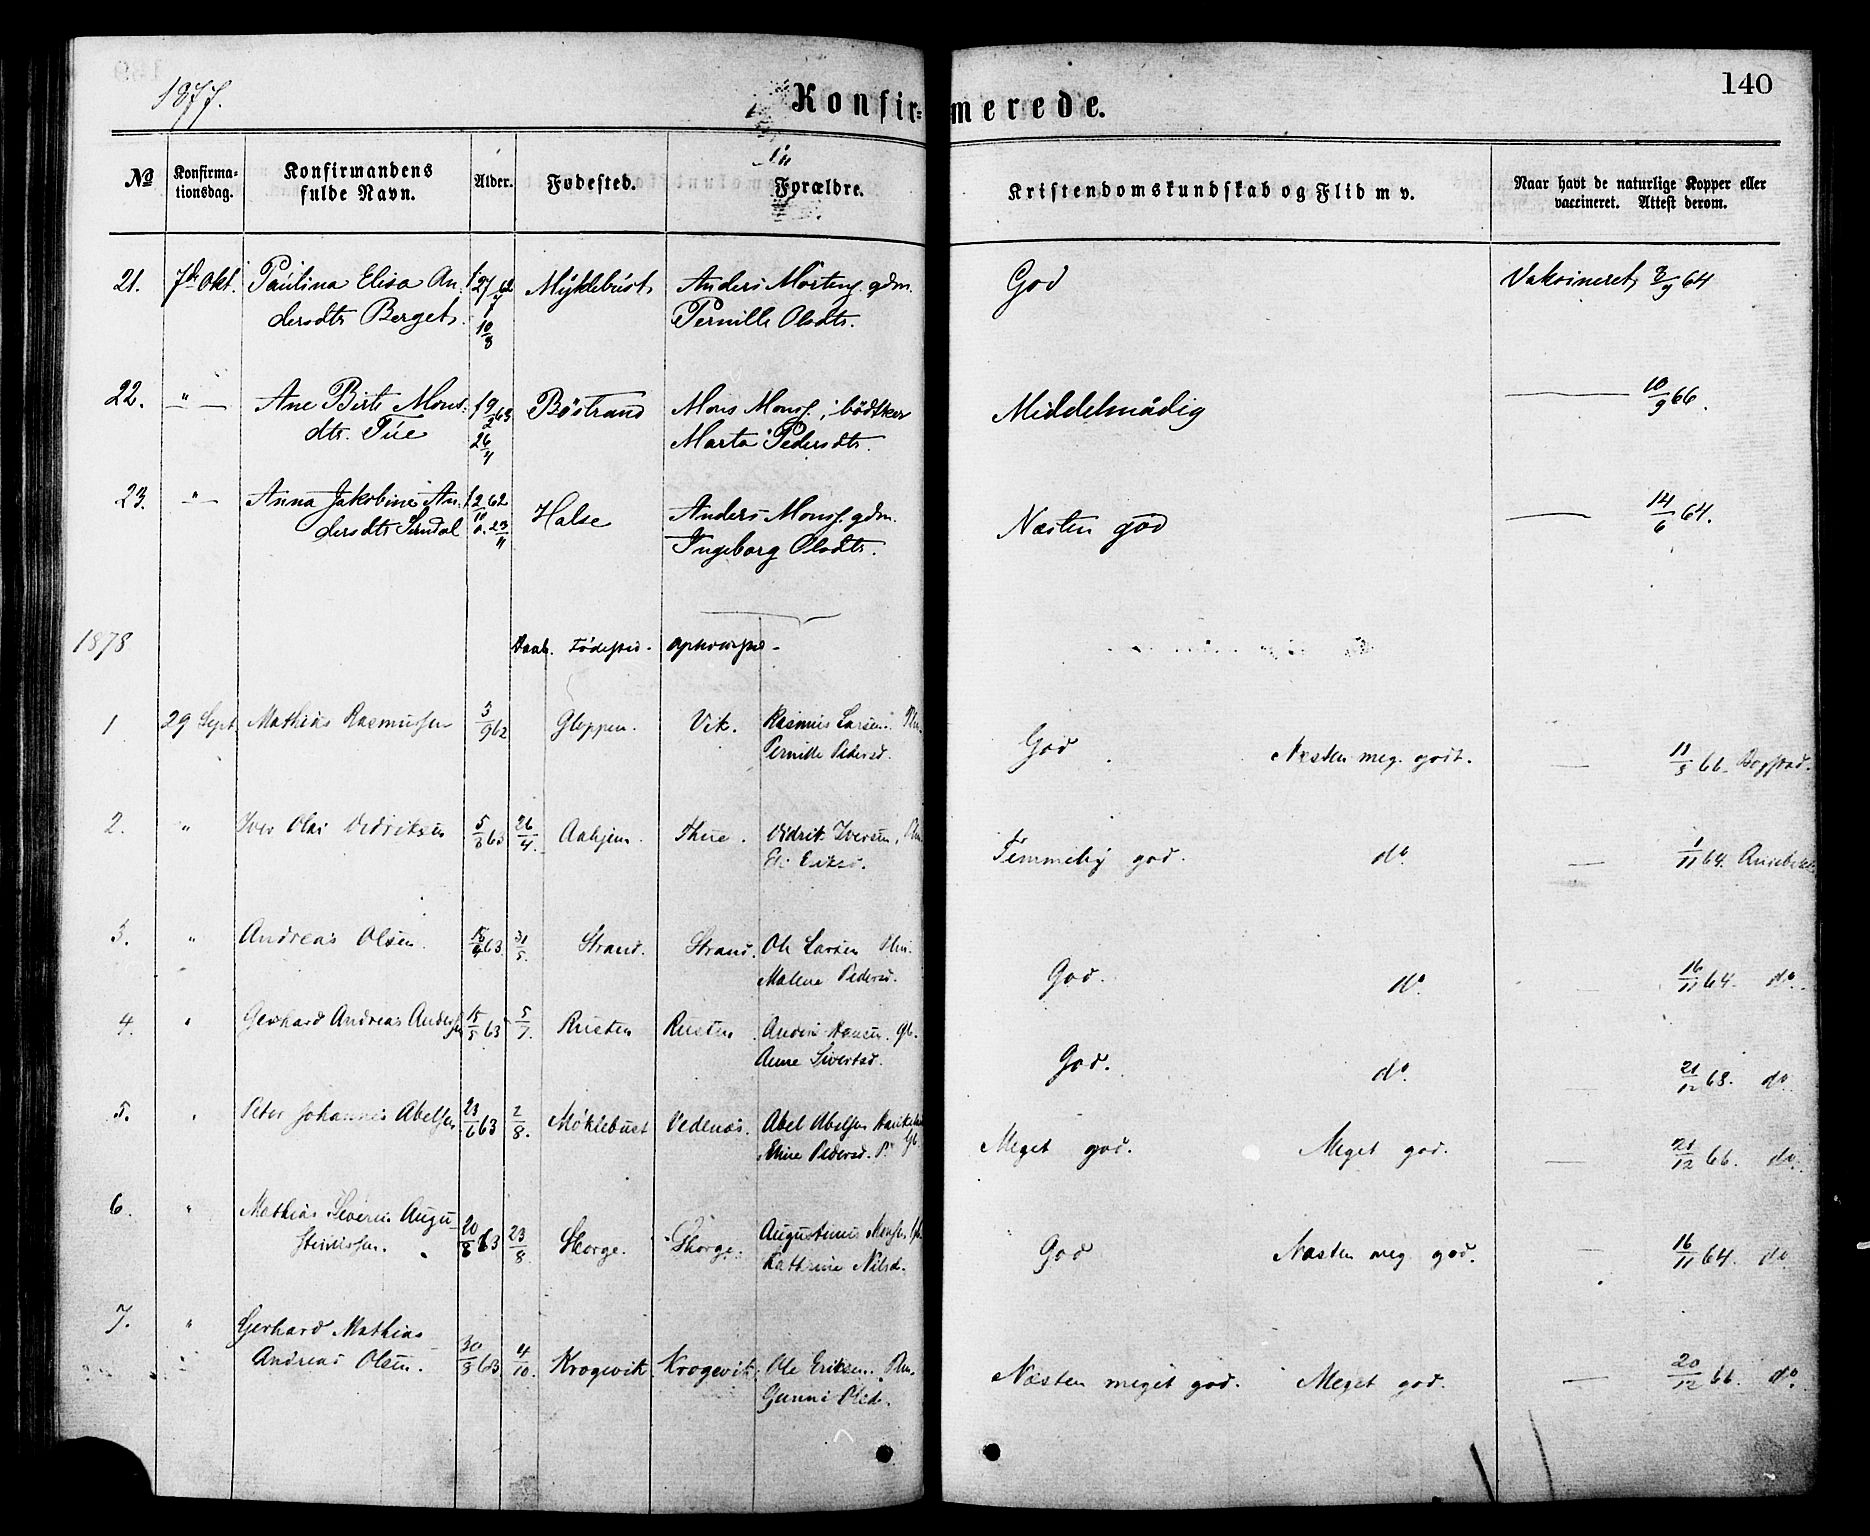 1877.
Konfir=merede.
140
No
Konfirma-
tionsdag.
Konfirmandens
fulde Navn.
Alder.
Fødested.
Forældre.
Kristendomskundskab og Flid m v.
Naar havt de naturlige Kopper eller
vaccineret. Attest derom.
21. 7de Okt. Paulina Elisa An- f 27/7 62 Myklebust Anders Mortens. gdm. God Vaksineret 8/9 64
dersdtr Berget. 10/8 Pernille Olsdtr.
22. " Ane Birte Mons- f 9/2 63 Böstrand Mons Mons. bödtker Middelmådig — 10/9 66.
dtr. Tue 26/4 Marta Pedersdtr.
23. " Anna Jakobine An- f 2/11 62 Halse Anders Mons. gdm. Næsten god — 14/6 64.
dersdtr Sindal 23/11 Ingeborg Olsdtr.
1878
Daab. Fødested. Opholdssted.
1 29 Sept Mathias Rasmussen 3/9 62 Gloppen. Vik. Rasmus Larsen. Plm. God Næsten meg. godt. — 11/5 66
Pernille Pedersd.
2. " Iver Olai Vedriksen 5/3 63 26/4 Aahjem. Thue. Vidrik Iversen, Plm Temmelig god. do — 1/11 64.
Eli Eriksd.
3. " Andreas Olsen. 15/4 63 31/5 Strand. Strand. Ole Larsen Plm. God. do. 16/11 64. do
Malene Pedersd.
4. " Gerhard Andreas Andersen 15/5 63 5/7. Rusten Rusten Anders Hansen. Gb. God. do. 21/12 63. do
Anne Sivertsd.
5. " Peter Johannes Abelsen 23/6 63 2/8. Møklebust Vedenæs. Abel Abelsen Meget god. Meget god. — 21/12 66. do
Eline Pedersd.
6. " Mathias Severin Augu- 20/8 63 23/8 Skorge. Skorge. Augustinus Monsen God Næsten meg god. 16/11 64. do
stinussen. Kathrine Nilsd.
7. " Gerhard Mathias
Andreas Olsen. 30/8 63 4/10. Krogevik. Krogevik. Ole Eriksen. Plm. Næsten meget god. Meget god. — 20/12 66. do.
Gunni Olsd.